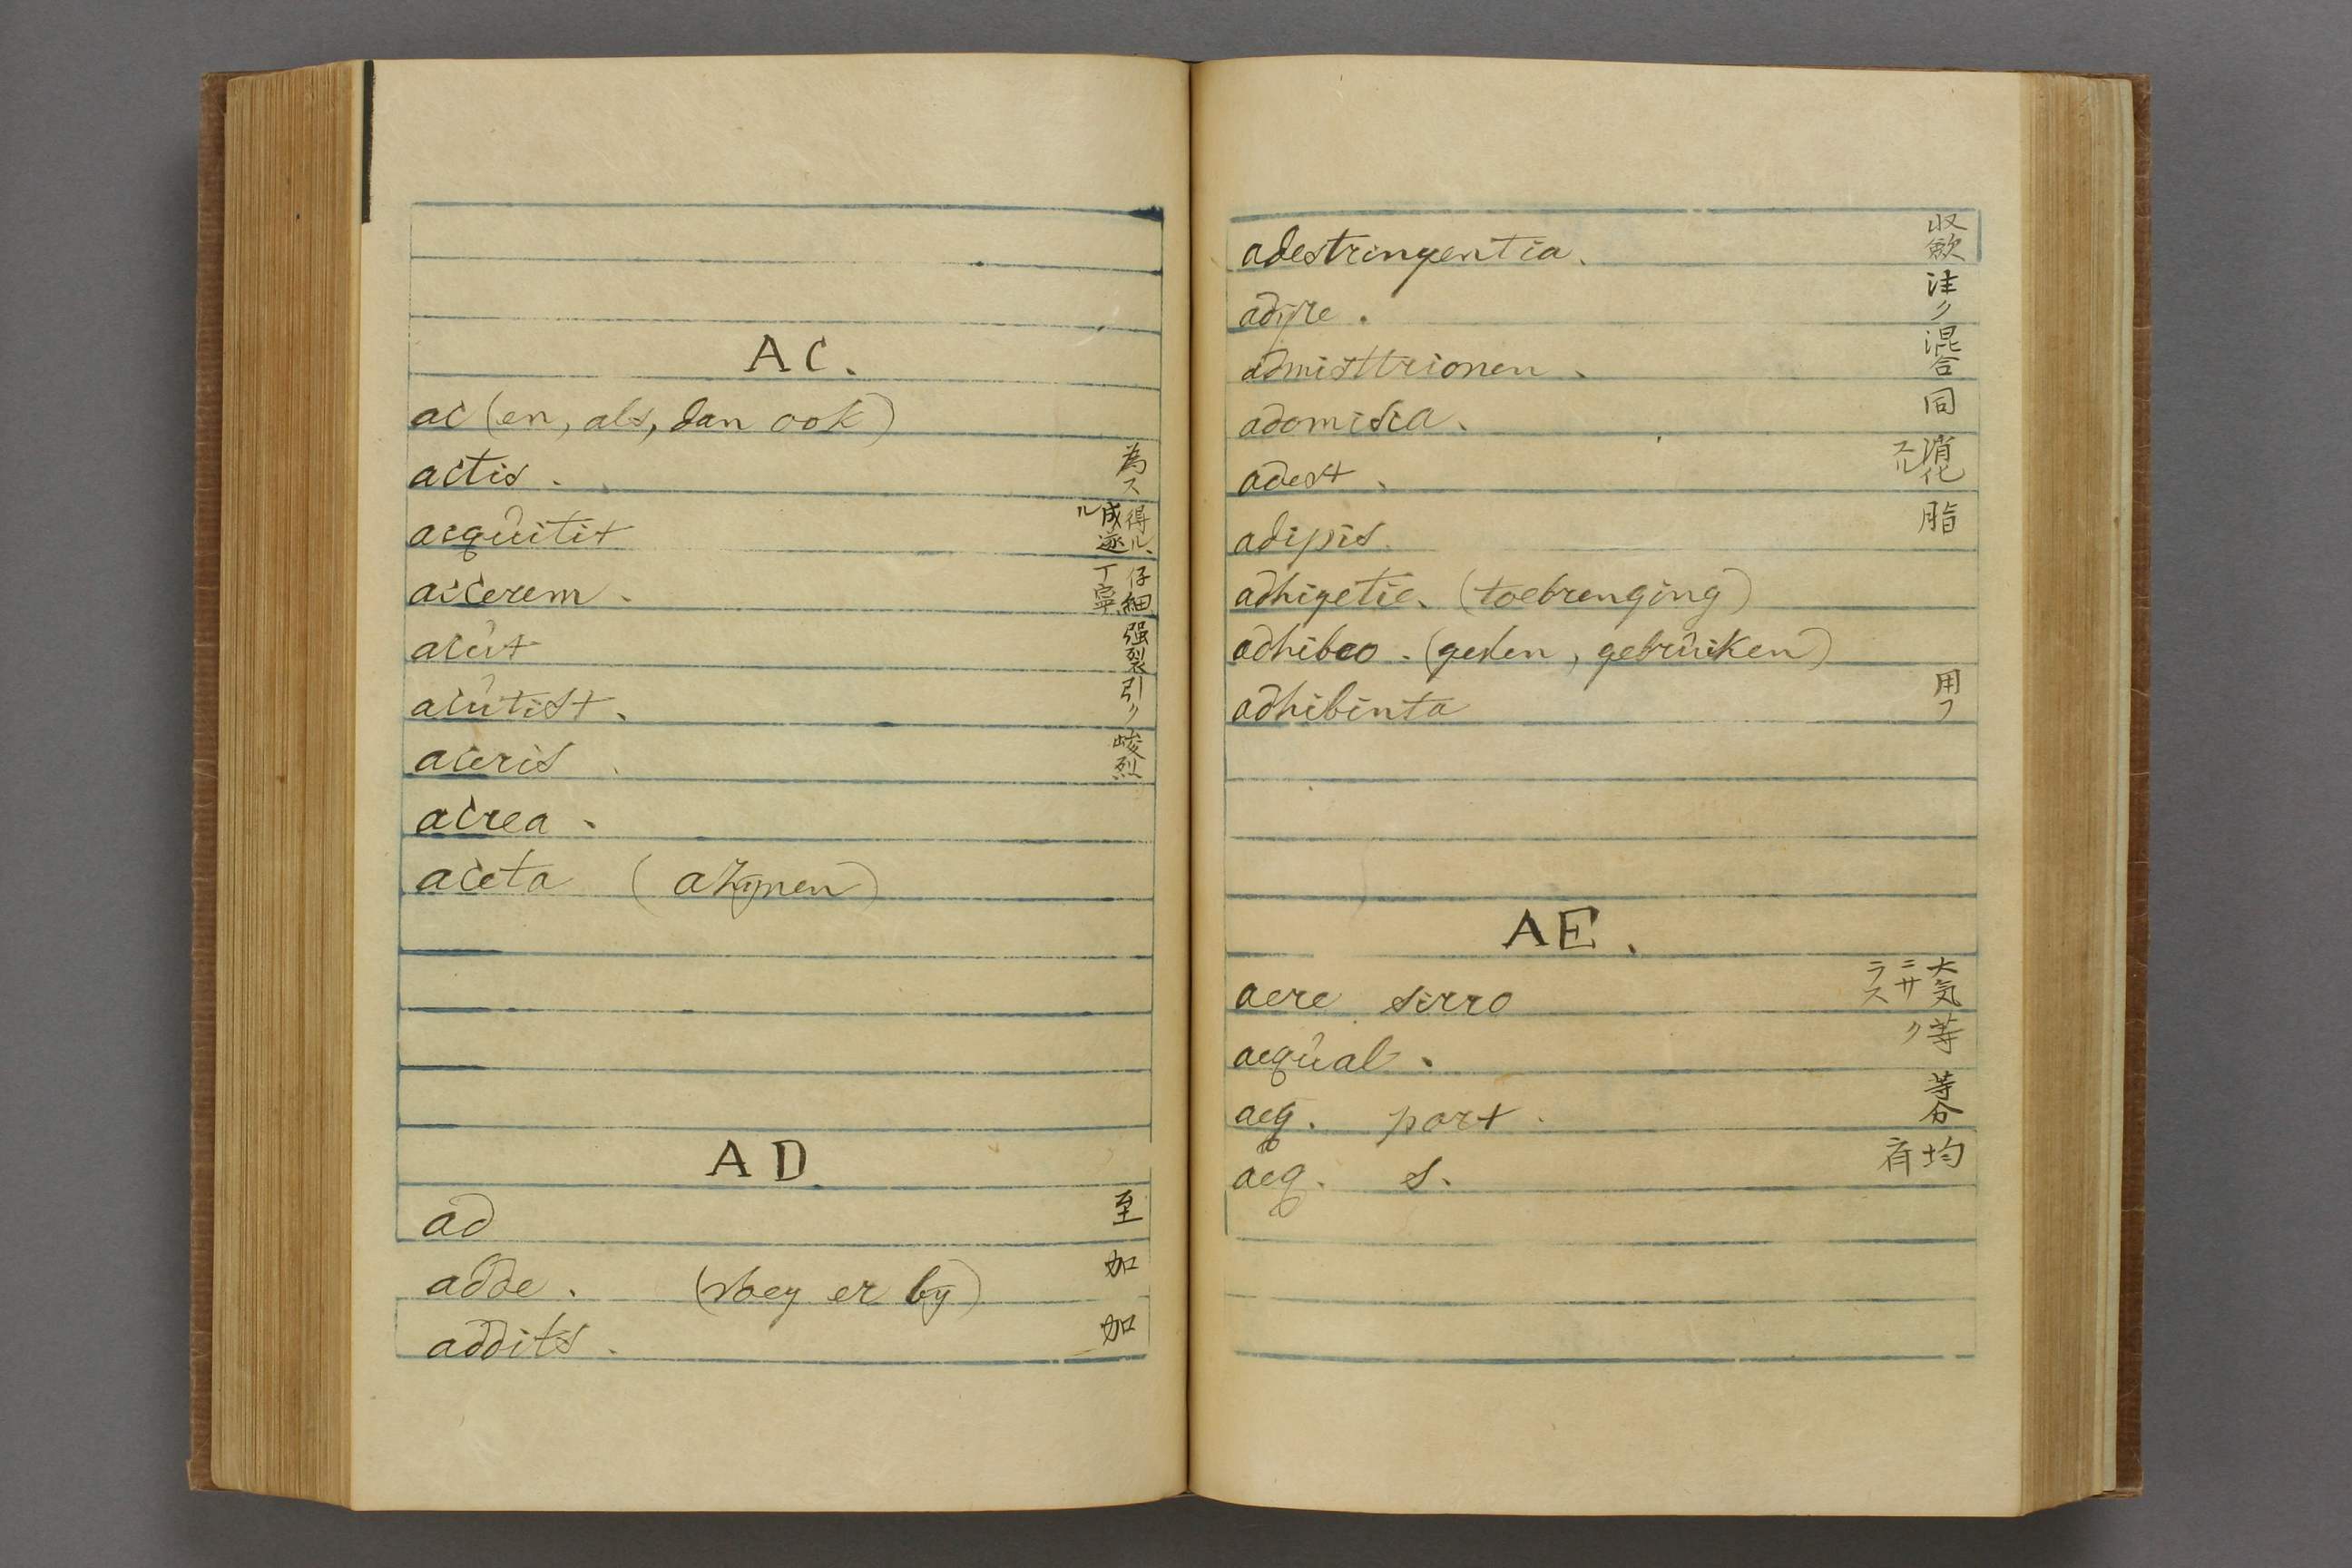 AC.
ac (en, als, dan ook)
actis. 為ス
acquitit 得ル、成遂ル
accerem. 仔細、丁寧
acut 强裂
acutist. 引ク
aceris 峻烈
acrea.
aceta (azynen)
AD.
ad 至
adde. (voeg er by) 加
addits. 加
adestringentia. 収斂
adijre. 注ク
admisttrionen. 混合
adomisca. 同
adest. 消化スル
adipis. 脂
adhigetie. (toebrenging)
adhibeo. (geven, gebruiken)
adhibinta 用フ
AE.
aere sirro 大気ニサラス
aequal. 等ク
aeq. part. 等分
aeq. s. 均斉